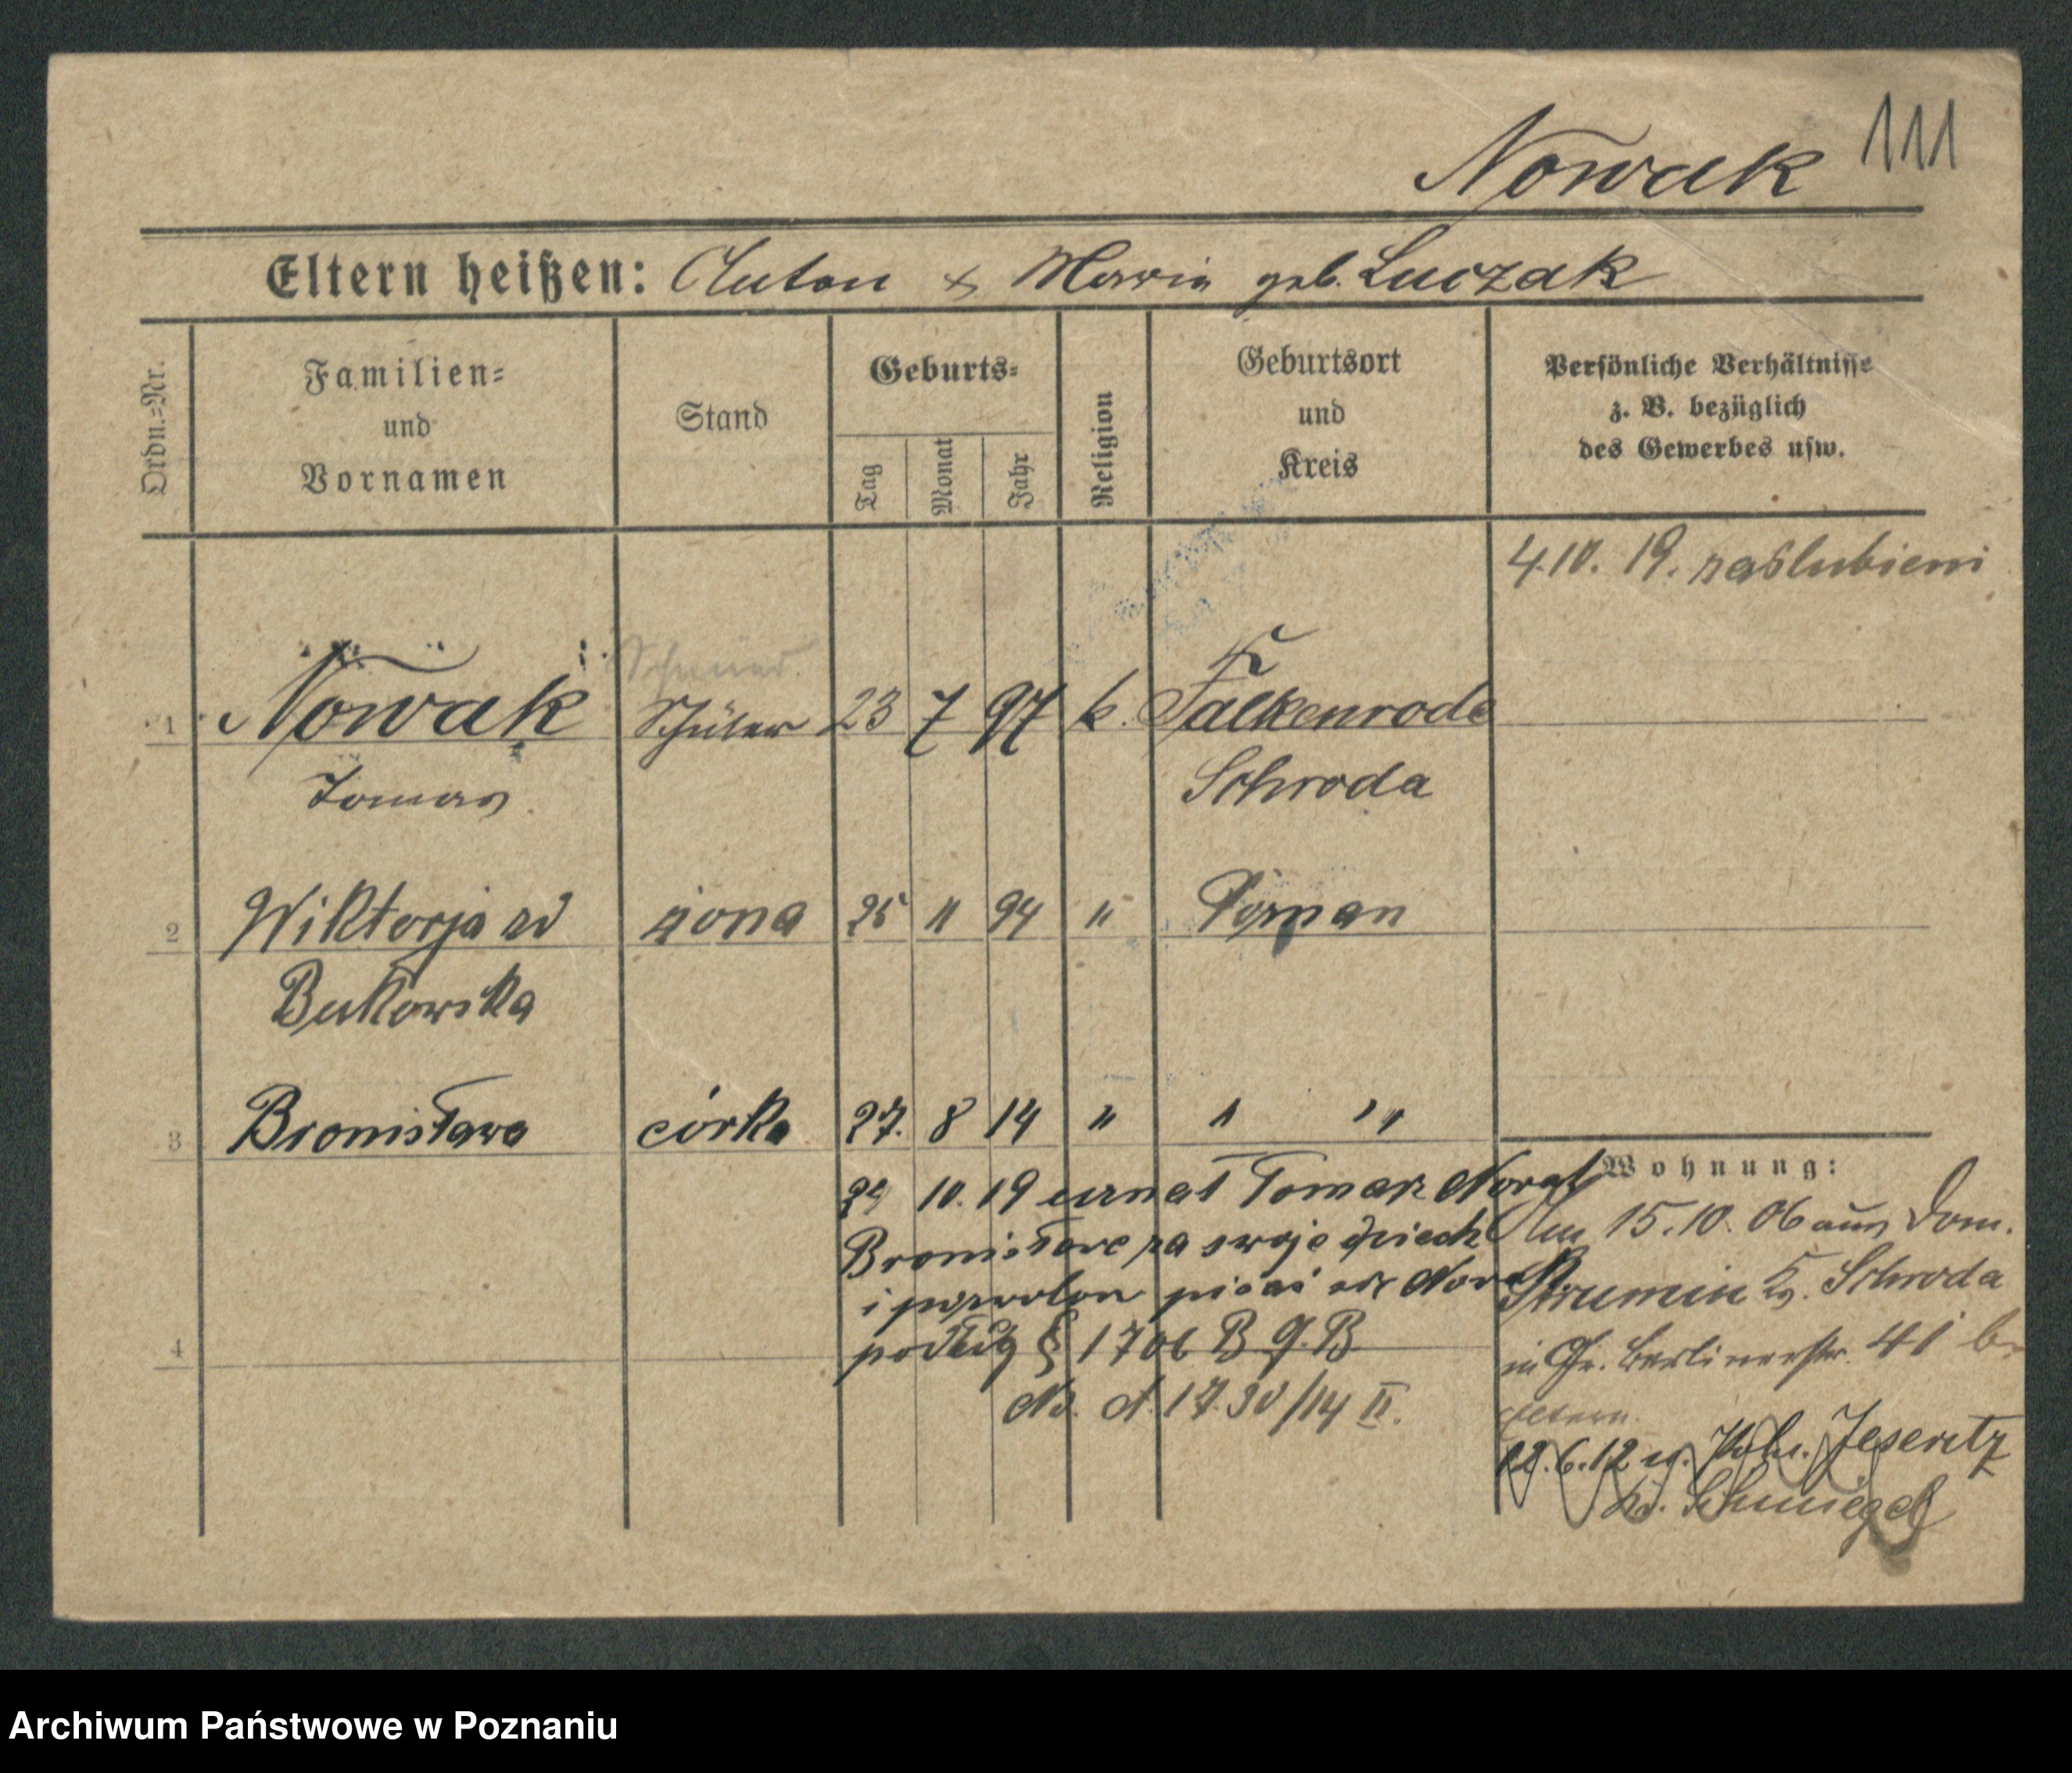 Nowak 111
Eltern heißen: Anton & Maria geb. Luczak
Ordn.=Nr.
Familien=
und
Vornamen
Stand
Geburts=
Tag
Monat
Jahr
Religion
Geburtsort
und
Kreis
Persönliche Verhältnisse
z. B. bezüglich
des Gewerbes usw.
4.10. 19. zaślubieni
1 Nowak Schüler 23 7 97 k. Falkenrode
Tomas Schroda
2 Wiktorja zd żona 25 11 94 " Poznan
Bukowska
3 Bronisława córka 27. 8 14 " " "
29 10. 19 uznał Tomasz Nowak
Bronisławę za swoje dziecko
i pozwolon pisać się Nowak
podług § 1706 B G. B
No. 1730/14 II.
4
Wohnung:
Am 15.10.06 aus Dom.
Strumin Kr. Schroda
in Gr. Berlinerstr. 41 b.
Eltern.
12.6.12 n. Poln. Jeseritz
Kr. Schmiegel
Archiwum Państwowe w Poznaniu